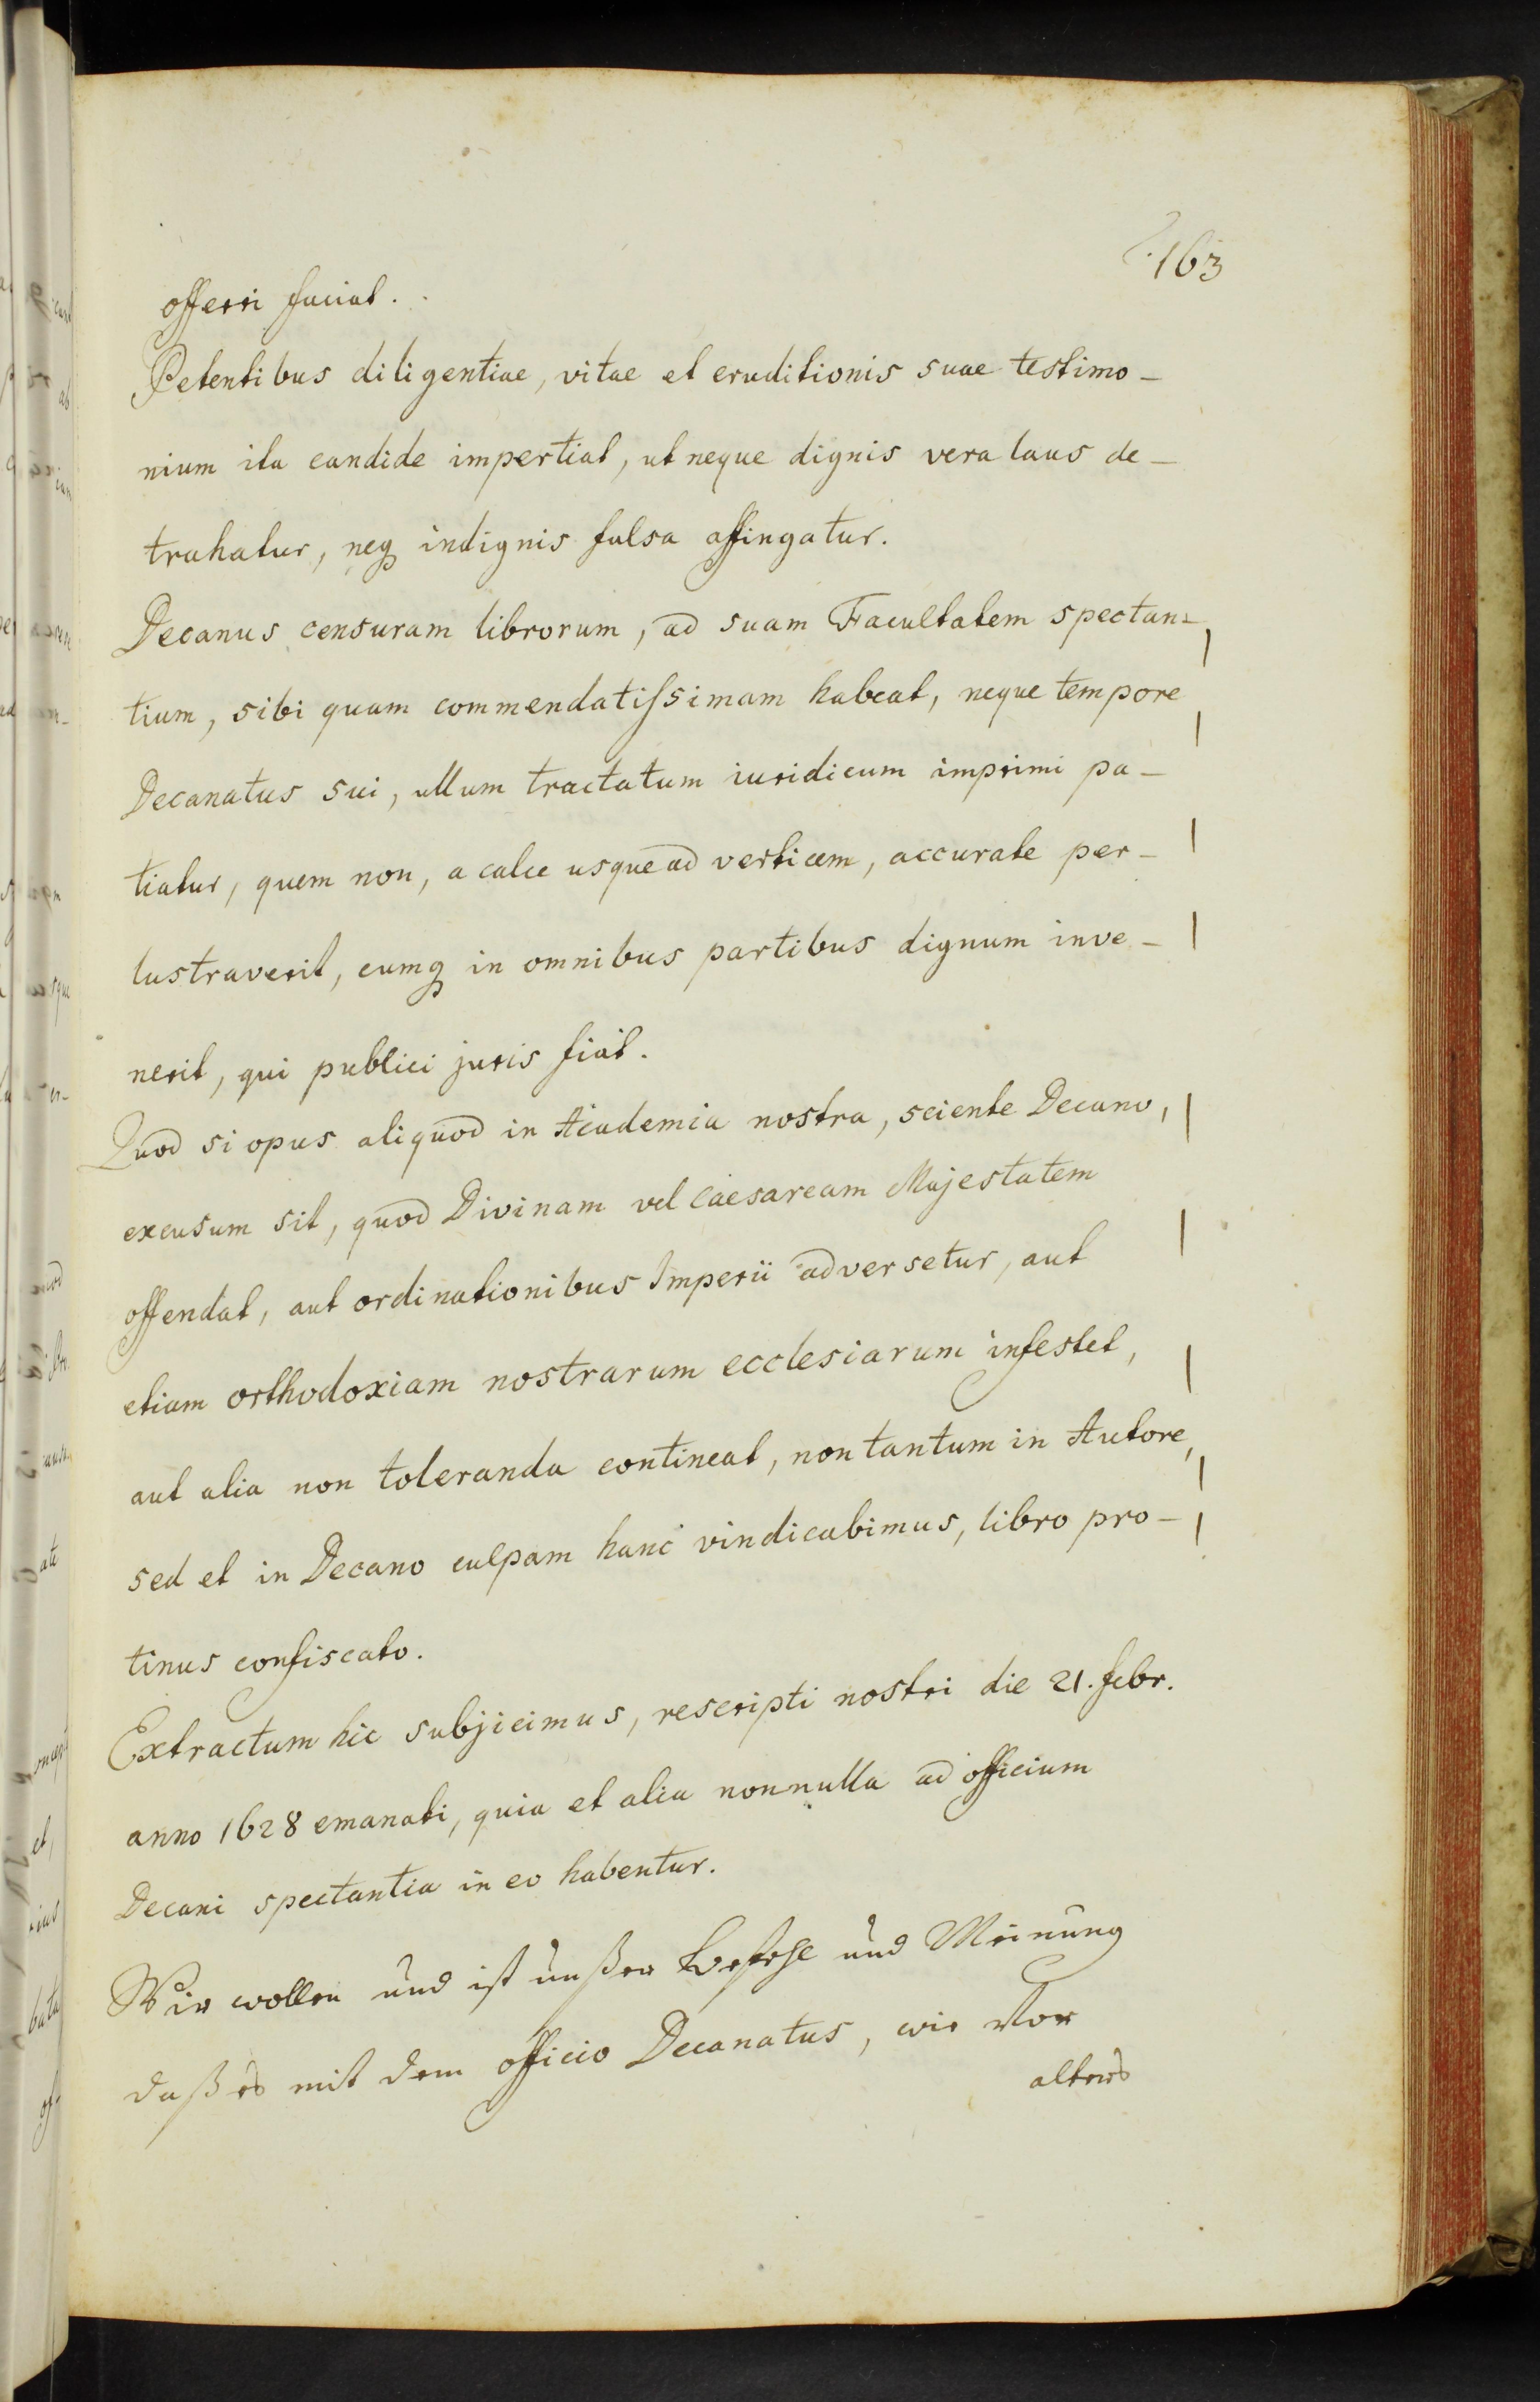 163
offerri faciat.
Petentibus diligentiae, vitae et eruditionis suae testimo-
nium ita candide impertiat, ut neque dignis vera laus de-
trahatur, neq indignis falsa affingatur.
Decanus censuram librorum, ad suam Facultatem spectan-
tium, sibi quam commendatissimam habeat, neque tempore
Decanatus sui, ullum tractatum iuridicum imprimi pa-
tiatur, quem non, a calce usque ad verticem, accurate per-
lustraverit, eumq in omnibus partibus dignum inve-
nerit, qui publici juris fiat.
Quod si opus aliquod in Academia nostra, sciente Decano,
excusum sit, quod Divinam vel Caesaream Majestatem
offendat, aut ordinationibus Imperii adversetur, aut
etiam orthodoxiam nostrarum ecclesiarum infestet,
aut alia non toleranda contineat, non tantum in Autore,
sed et in Decano culpam hanc vindicabimus, libro pro-
tinus confiscato.
Extractum hic subjicimus, rescripti nostri die 21. febr.
anno 1628 emanati, quia et alia nonnulla ad officium
Decani spectantia in eo habentur.
Wir wollen und ist unßer Befehl und Meinung
daß es mit dem officio Decanatus, wie Vor
alters